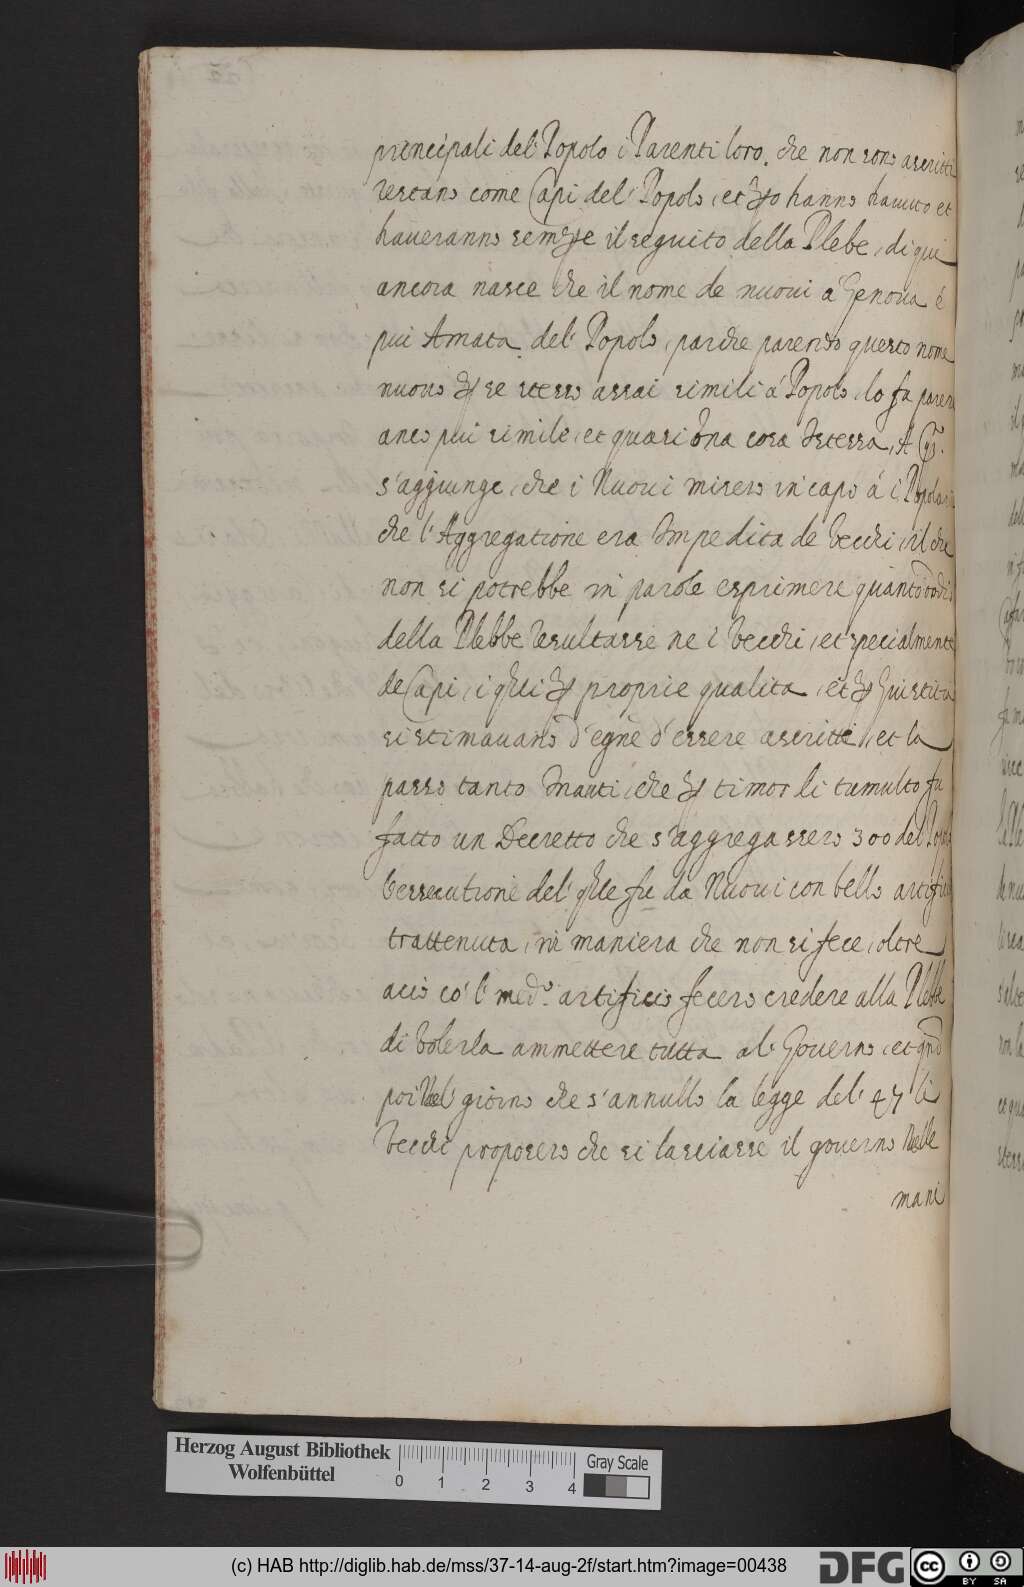 principali del' Popolo i Parenti loro, che non sono ascritti
restano come Capi del' Popolo, et però hanno havuto et
haveranno sempre il seguito della Plebe, di qui
ancora nasce che il nome de nuovi a Genova é
piú Amata del' Popolo, parche parendo questo nome
nuovo per se stesso assai simili á Popolo, lo fa parere
anco piú simile, et quasi una cosa istessa, A
s'aggiunge, che i Nuovi misero in capo á i Popolari
che l'Aggregatione era Impedita de Vecchi, il che
non si potrebbe in parole esprimere quanto odio
della Plebbe resultasse ne i Vecchi, et specialmente
de Capi, i quali per proprie qualita, et per Giustitia
si stimavano d'egne d'essere ascritti, et la
passò tanto Inanti, che per timor di tumulto fu
fatto un Decretto che s'aggregassero 300 del Popolo
l'essecutione del' quale fu da Nuovi con bello artificio
trattenuta, in maniera che non si fece, oltre
acio co' l' medo. artificio fecero credere alla Plebbe
di volerla ammettere tutta al Governo, et qndo
poi Nel giorno che s'annullò la legge del' 47 li
Vecchi proposero che si lasciasse il governo Nelle
mani
Herzog August Bibliothek
Wolfenbüttel
0 1 2 3 4
Gray Scale
(c) HAB http://diglib.hab.de/mss/37-14-aug-2f/start.htm?image=00438
DFG
cc BY SA